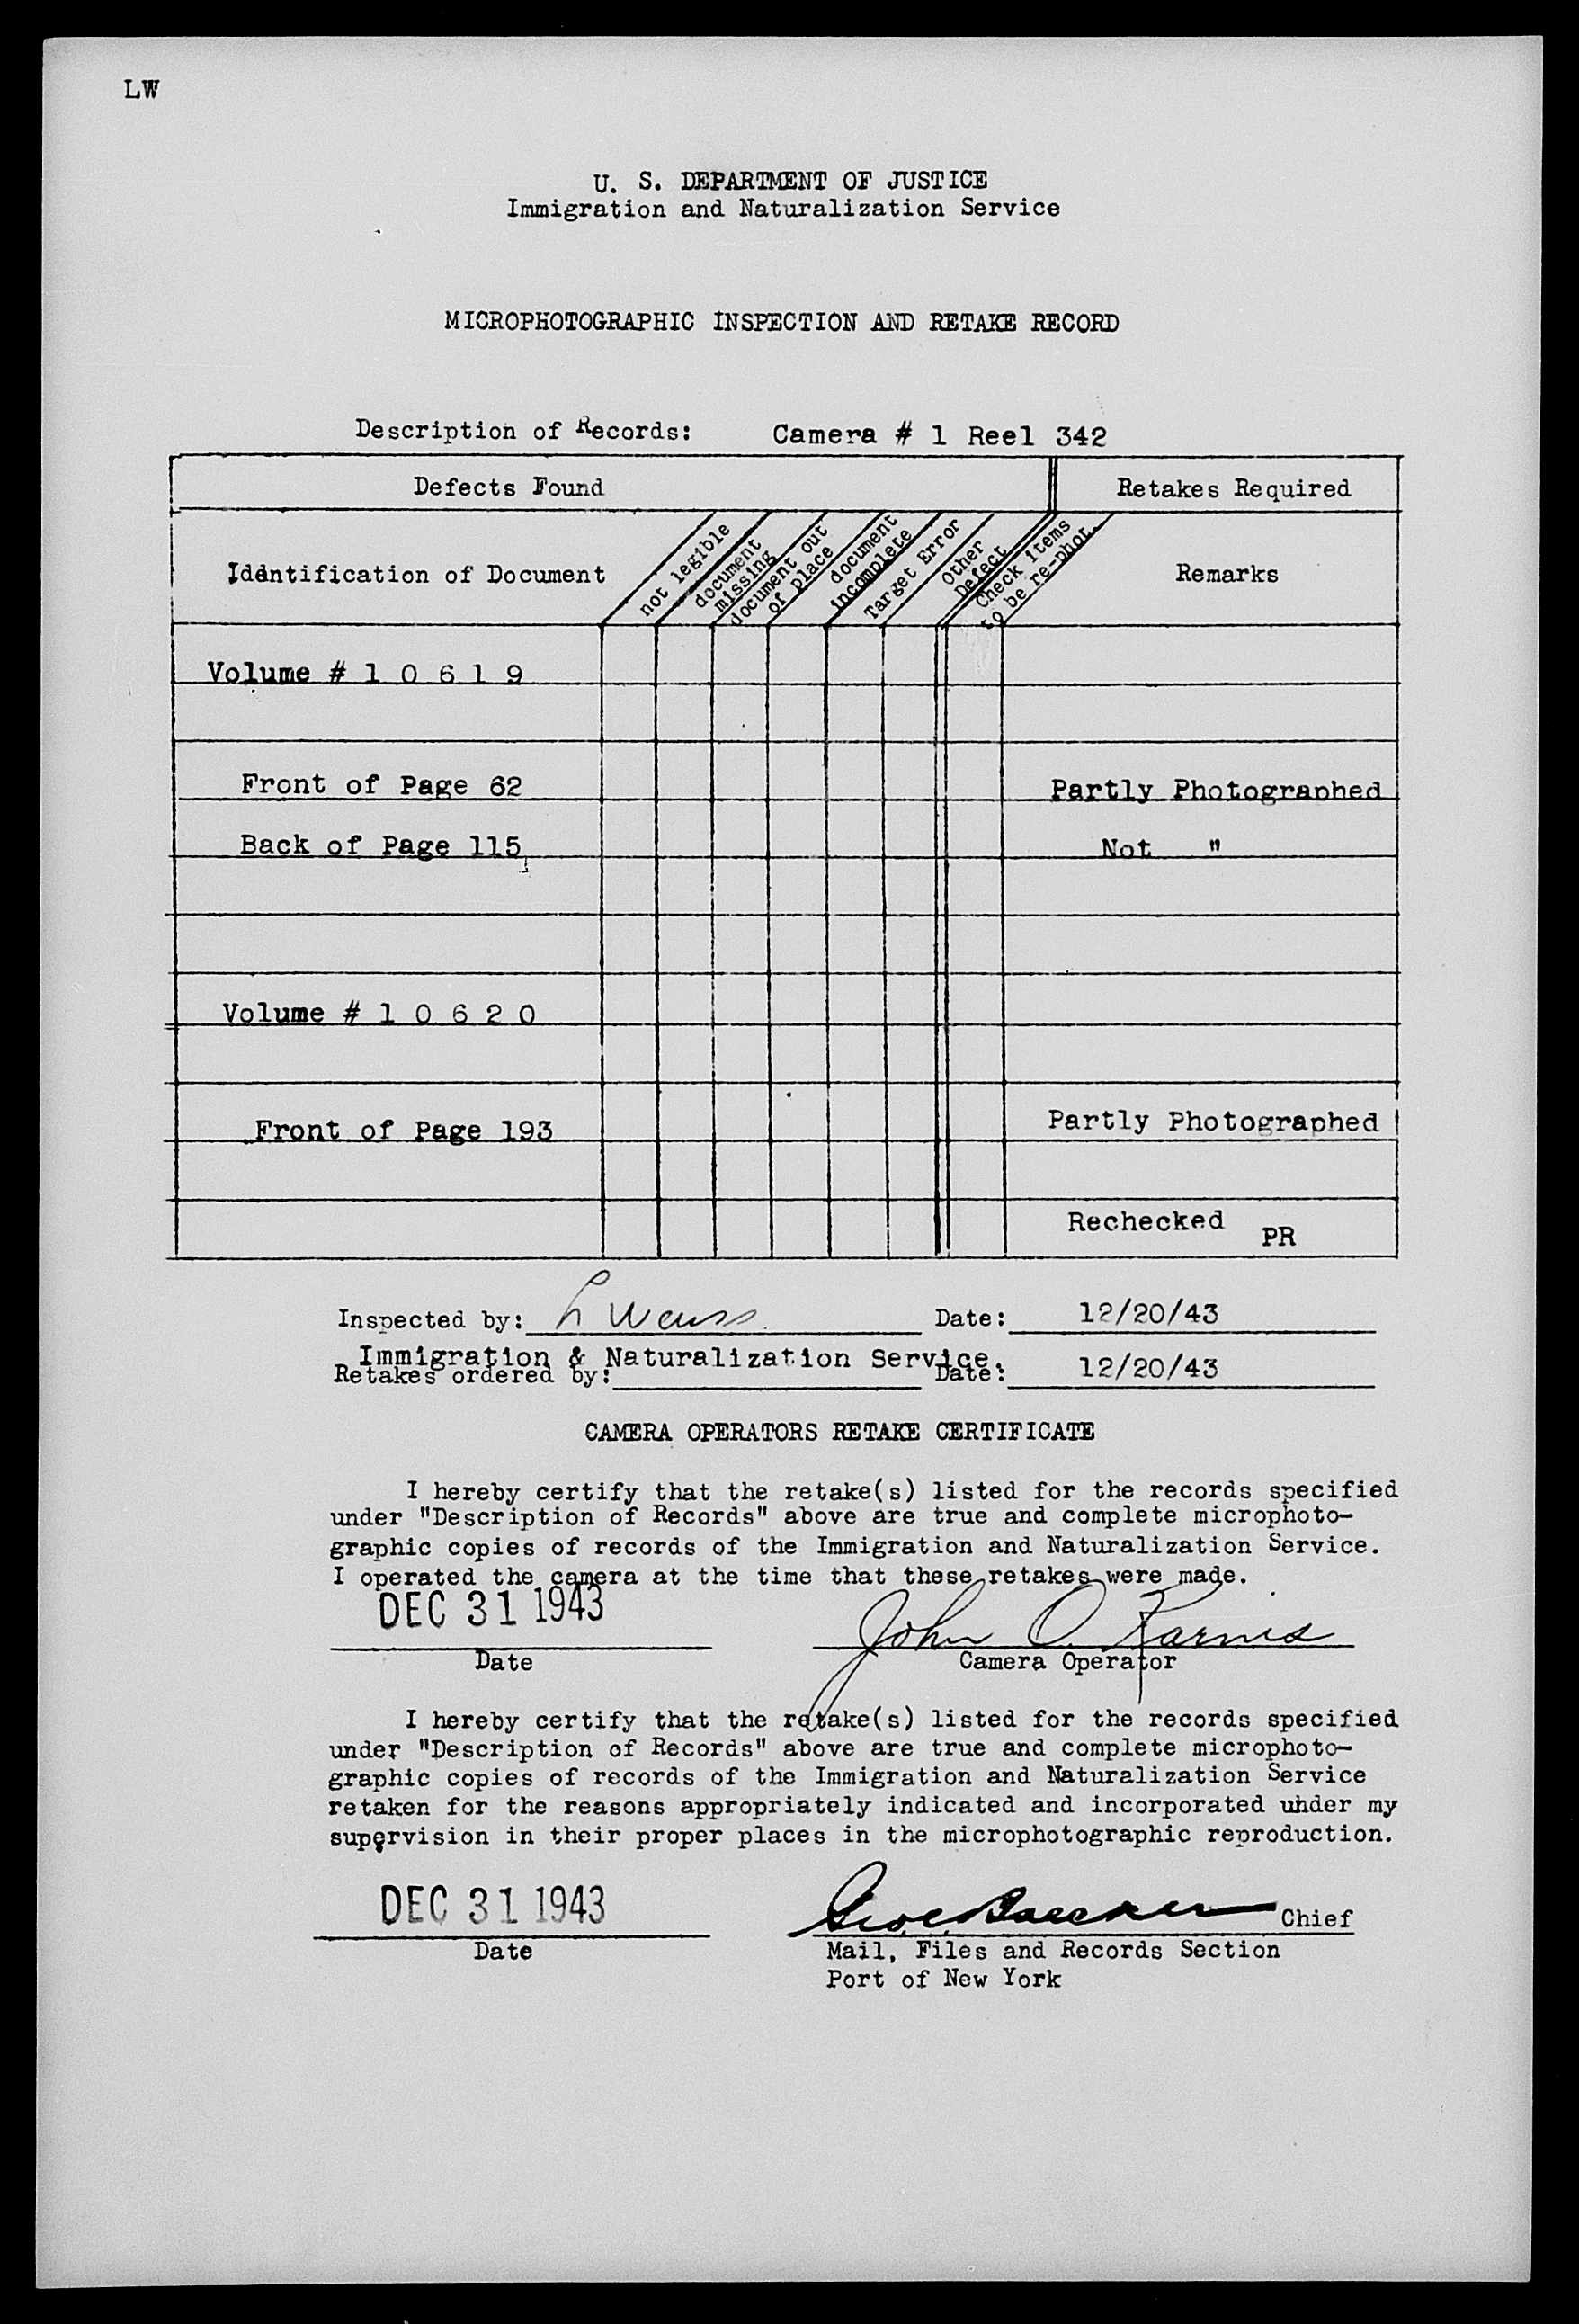 LW
U. S. DEPARTMENT OF JUSTICE
Immigration and Naturalization Service
MICROPHOTOGRAPHIC INSPECTION AND RETAKE RECORD
Description of Records: Camera # 1 Reel 342
Defects Found Retakes Required
Iddntification of Document
not legible
document missing
document out of place
document incomplete
Target Error
Other Defect
Check items to be re-phot.
Remarks
Volume # 1 0 6 1 9
Front of Page 62 Partly Photographed
Back of Page 115 Not "
Volume # 1 0 6 2 0
Front of Page 193 Partly Photographed
Rechecked PR
Inspected by: L Weiss Date: 12/20/43
Immigration & Naturalization Service.
Retakes ordered by: Date: 12/20/43
CAMERA OPERATORS RETAKE CERTIFICATE
I hereby certify that the retake(s) listed for the records specified
under "Description of Records" above are true and complete microphoto-
graphic copies of records of the Immigration and Naturalization Service.
I operated the camera at the time that these retakes were made.
DEC 31 1943 John O. Karnis
Date Camera Operator
I hereby certify that the retake(s) listed for the records specified
under "Description of Records" above are true and complete microphoto-
graphic copies of records of the Immigration and Naturalization Service
retaken for the reasons appropriately indicated and incorporated under my
supervision in their proper places in the microphotographic reproduction.
DEC 31 1943 Chief
Date Mail, Files and Records Section
Port of New York